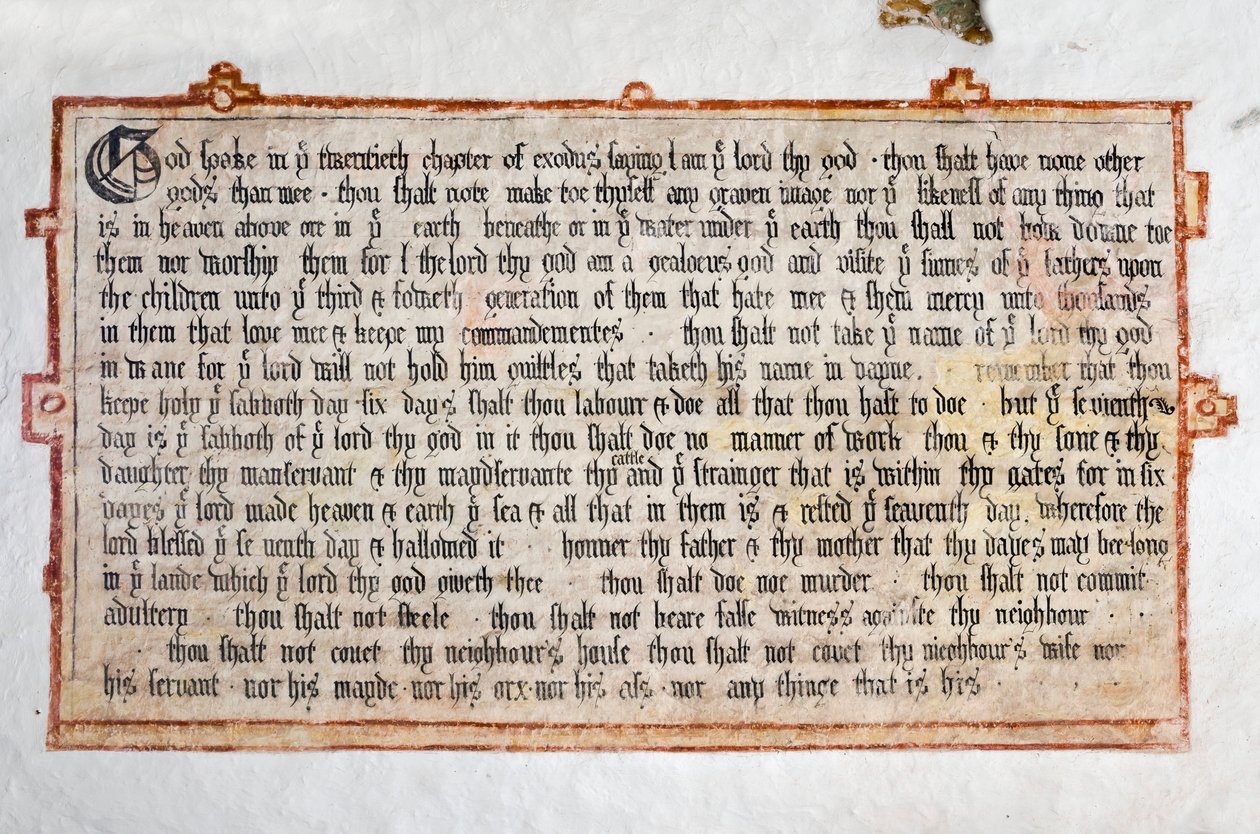 God spake in yͤ twentieth chapter of exodus saying I am yͤ lord thy god · thou shalt have none other
gods than mee · thou shalt note make toe thyself any graven image nor yͤ likeness of any thing that
is in heaven above ore in yͤ earth beneathe or in yͤ water under yͤ earth thou shall not bow downe toe
them nor worship them for I the lord thy god am a gealoeus god and visite yͤ sinnes of yͤ fathers upon
the children unto yͤ third & foweth generation of them that hate mee & shew mercy unto thousands
in them that love mee & keepe my commandementes · thou shalt not take yͤ name of yͤ lord thy god
in vane for yͤ lord will not hold him guiltles that taketh his name in vayne. remember that thou
keepe holy yͤ sabboth day six days shalt thou labourr & doe all that thou hast to doe · but yͤ sevienth
day is yͤ sabboth of yͤ lord thy god in it thou shalt doe no manner of work thou & thy sone & thy
daughter thy manservant & thy maydservante thy cattle and yͤ strainger that is within thy gates for in six
dayes yͤ lord made heaven & earth yͤ sea & all that in them is & rested yͤ seaventh day. wherefore the
lord blessed yͤ se venth day & hallowed it · honner thy father & thy mother that thy dayes may bee long
in yͤ lande which yͤ lord thy god giveth thee · thou shalt doe noe murder · thou shalt not commit
adultery · thou shalt not steele · thou shalt not beare false witness againste thy neighbour · ·
· thou shalt not couet thy neighbour's house thou shalt not couet thy nieghbour's wife nor
his servant · nor his mayde · nor his orx · nor his ass · nor any thinge that is his ·